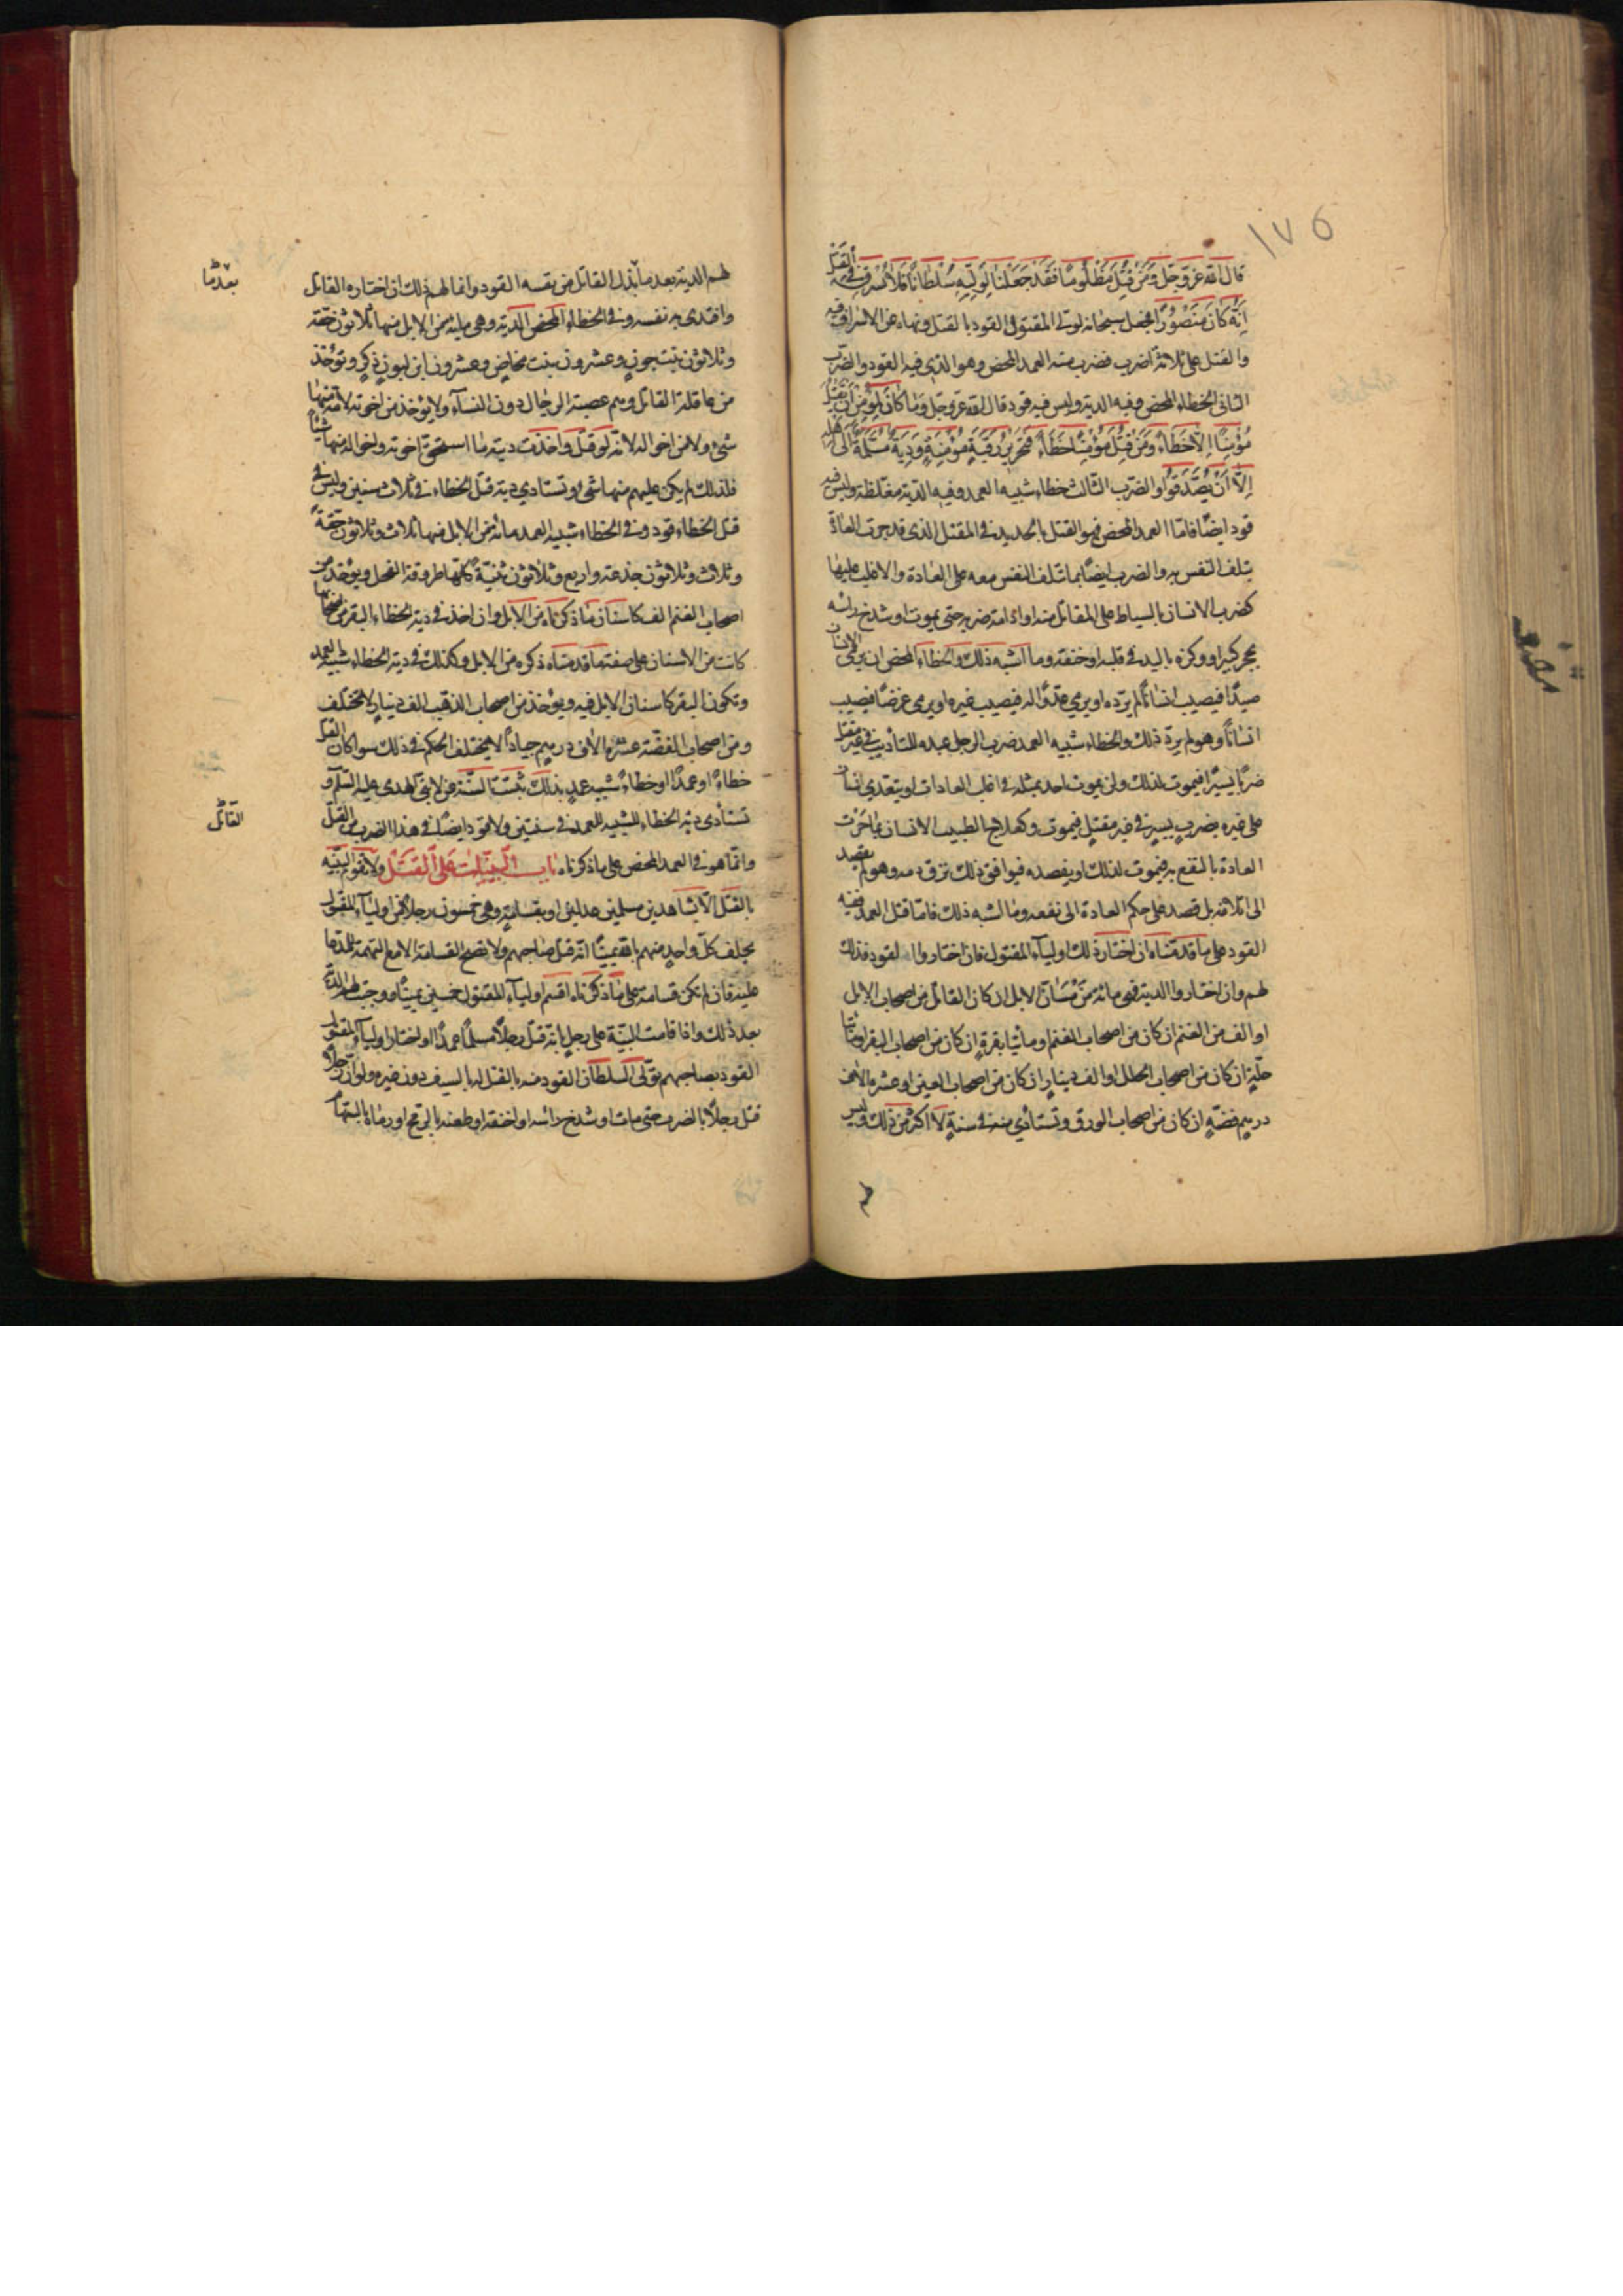 ١٧٥
قال الله عز وجل ومن قتل مظلوما فقد جعلنا لوليه سلطانا فلا يسرف في القتل
انه كان منصورا فجعل سبحانه لولي المقتول القود بالقتل ونهاه عن الاسراف فيه
والقتل على ثلاثة اضرب فضرب منه العمد المحض وهو الذي فيه القود والضرب
الثاني الخطاء المحض وفيه الدية وليس فيه قود قال الله عز وجل وما كان لمؤمن ان يقتل
مؤمنا الا خطاء ومن قتل مؤمنا خطاء فتحرير رقبة مؤمنة ودية مسلمة الى اهله
الا ان يصدقوا والضرب الثالث خطاء شبيه العمد وفيه الدية مغلظة وليس فيه
قود ايضا فاما العمد المحض فهو القتل بالحديد في المقتل الذي قد جرت العادة
بتلف النفس به والضرب ايضا بما تتلف النفس معه على العادة والاغلب عليها
كضرب الانسان بالسياط على المقاتل منه او ادامة ضربه حتى يموت او شدخ راسه
بحجر كبير او وكزه باليد في قلبه او خنقه وما اشبه ذلك والخطاء المحض ان يرمي الانسان
صيدا فيصيب انسانا لم يرده او يرمي عدوا له فيصيب غيره او يرمي غرضا فيصيب
انسانا وهو لم يرد ذلك والخطاء شبيه العمد ضرب الرجل عبده للتأديب في غير مقتل
ضربا يسيرا فيموت لذلك ولن يموت احد بمثله في اغلب العادات او يتعدي انسان
على غيره بضرب يسير في غير مقتل فيموت وكعلاج الطبيب الانسان بما جرت
العادة بالنفع به فيموت لذلك او يفصده فيوافق ذلك نزف دمه وهو لم يقصد
الى اتلافه بل قصد على حكم العادة الى نفعه وما اشبه ذلك فاما قتل العمد ففيه
القود على ما قدمناه ان اختار ذلك اولياء المقتول فان اختاروا القود فذلك
لهم وان اختاروا الدية فهي مائة من مسان الابل ان كان القاتل من اصحاب الابل
او الف من الغنم ان كان من اصحاب الغنم او مأتا بقرة ان كان من اصحاب البقر او مأتا
حلة ان كان من اصحاب الحلل او الف دينار ان كان من اصحاب العين او عشرة الاف
درهم فضة ان كان من اصحاب الورق وتستأدي منه في سنة لا اكثر من ذلك وليس
لهم الدية بعد ما بذل القاتل من نفسه القود وانما لهم ذلك ان اختاره القاتل
وافتدى به نفسه وفي الخطاء المحض الدية وهي مائة من الابل منها ثلاثون حقة
وثلاثون بنت لبون وعشرون بنت مخاض وعشرون ابن لبون ذكر وتؤخذ
من عاقلة القاتل وهم عصبة الرجال دون النساء ولا يؤخذ من اخوته لامه منها
شئ ولا من اخواله لانه لو قتل واخذت ديته ما استحق اخوته واخواله منها شيئا
فلذلك لم يكن عليهم منها شئ وتستادي دية قتل الخطاء في ثلاث سنين وليس في
قتل الخطاء قود وفي الخطاء شبيه العمد مائة من الابل فيها ثلاث وثلاثون حقة
وثلاث وثلاثون جذعة واربع وثلاثون ثنية كلها طروقة الفحل ويؤخذ من
اصحاب الغنم الف كاسنان ما ذكرناه من الابل وان اخذ في دية الخطاء البقر من اصحابها
كانت من الاسنان على صفة ما قدمناه ذكره من الابل وكذلك في دية الخطاء شبيه العمد
وتكون البقر كاسنان الابل فيه ويؤخذ من اصحاب الذهب الف دينار لا يختلف
ومن اصحاب الفضة عشرة الاف درهم جيادا لا يختلف الحكم في ذلك سوا كان القتل
خطاء او عمدا او خطاء شبيه عمد بذلك ثبتت السنة عن نبي الهدى عليه السلم و
تستأدى دية الخطاء الشبيه للعمد في سنتين ولا قود ايضا في هذا الضرب من القتل
وانما هو في العمد المحض على ما ذكرناه باب البينات على القتل ولا تقوم البينة
بالقتل الا بشاهدين مسلمين عدلين او بقسامة وهي خمسون رجلا من اولياء المقتول
يحلف كل واحد منهم بالله يمينا انه قتل صاحبهم ولا تصح القسامة الا مع التهمة للمدعا
عليه فان لم تكن قسامة على ما ذكرناه اقسم اولياء المقتول خمسين يمينا ووجبت لهم الدية
بعد ذلك واذا قامت البينة على رجل بانه قتل رجلا مسلما عمدا واختار اولياء المقتول
القود بصاحبهم تولى السلطان القود منه بالقتل له بالسيف دون غيره ولو ان رجلا
قتل رجلا بالضرب حتى مات او شدخ رأسه او خنقه او طعنه بالرمح او رماه بالسهام
بعد ما
القاتل